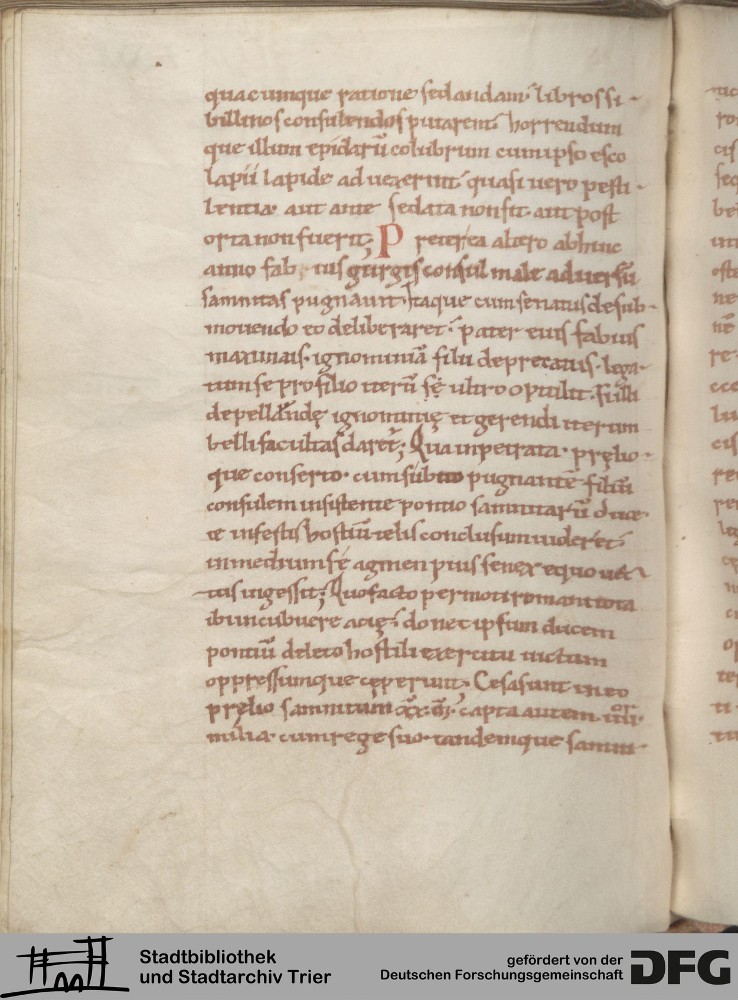 quacumque ratione sedandam libros si-
billinos consulendos putarent horrendum
que illum epidarū colubrum cum ipso esco
lapii lapide aduexerint quasi uero pesti-
lentia aut ante sedata non sit aut post
orta non fuerit; Preterea altero abhinc
anno fab tus gurges consul male aduersū
samnitas pugnauit. Itaque cum senatus de sub-
mouendo eo deliberaret. pater eius fabius
maximus. ignominiā filii deprecatus. lega-
tum se pro filio iterū sę ultro optulit. si illi
depellendę ignominię et gerendi iterum
belli facultas daret; Qua inpetrata. pręlio-
que conserto. cum subito pugnantē filiū
consulem insistente pontio samnitarū duce
te infestis hostiū telis conclusum uideret.
in medium sę agmen pius senex equo uec
tus ingessit; Quo facto permoti romani tota
ibi incubuere acię. donec ipsum ducem
pontiū deleto hostili exercitu uictum
oppressumque cęperunt; Cesa sunt in eo
pręlio samnitum xx. capta autem. iiiior.
milia. cum rege suo. tandemque samni-
Stadtbibliothek
und Stadtarchiv Trier
gefördert von der
Deutschen Forschungsgemeinschaft
DFG